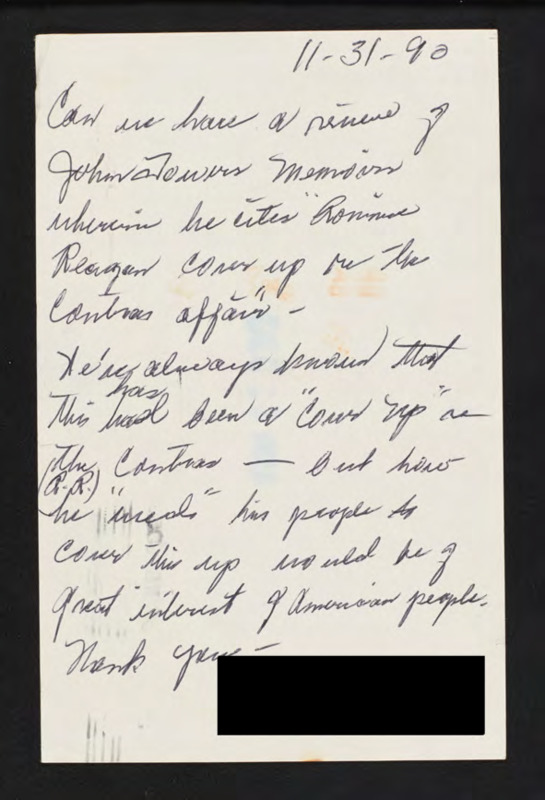 11-31-90
Can we have a review of
John Towers Memoirs
wherein he cites "Ronnie
Reagan cover up on the
Contras affair" -
We've always known that
has
this had been a "cover up" on
the Contras — but how
(R.R.)
he "used" his people to
cover this up would be of
great interest of American people.
Thank you -